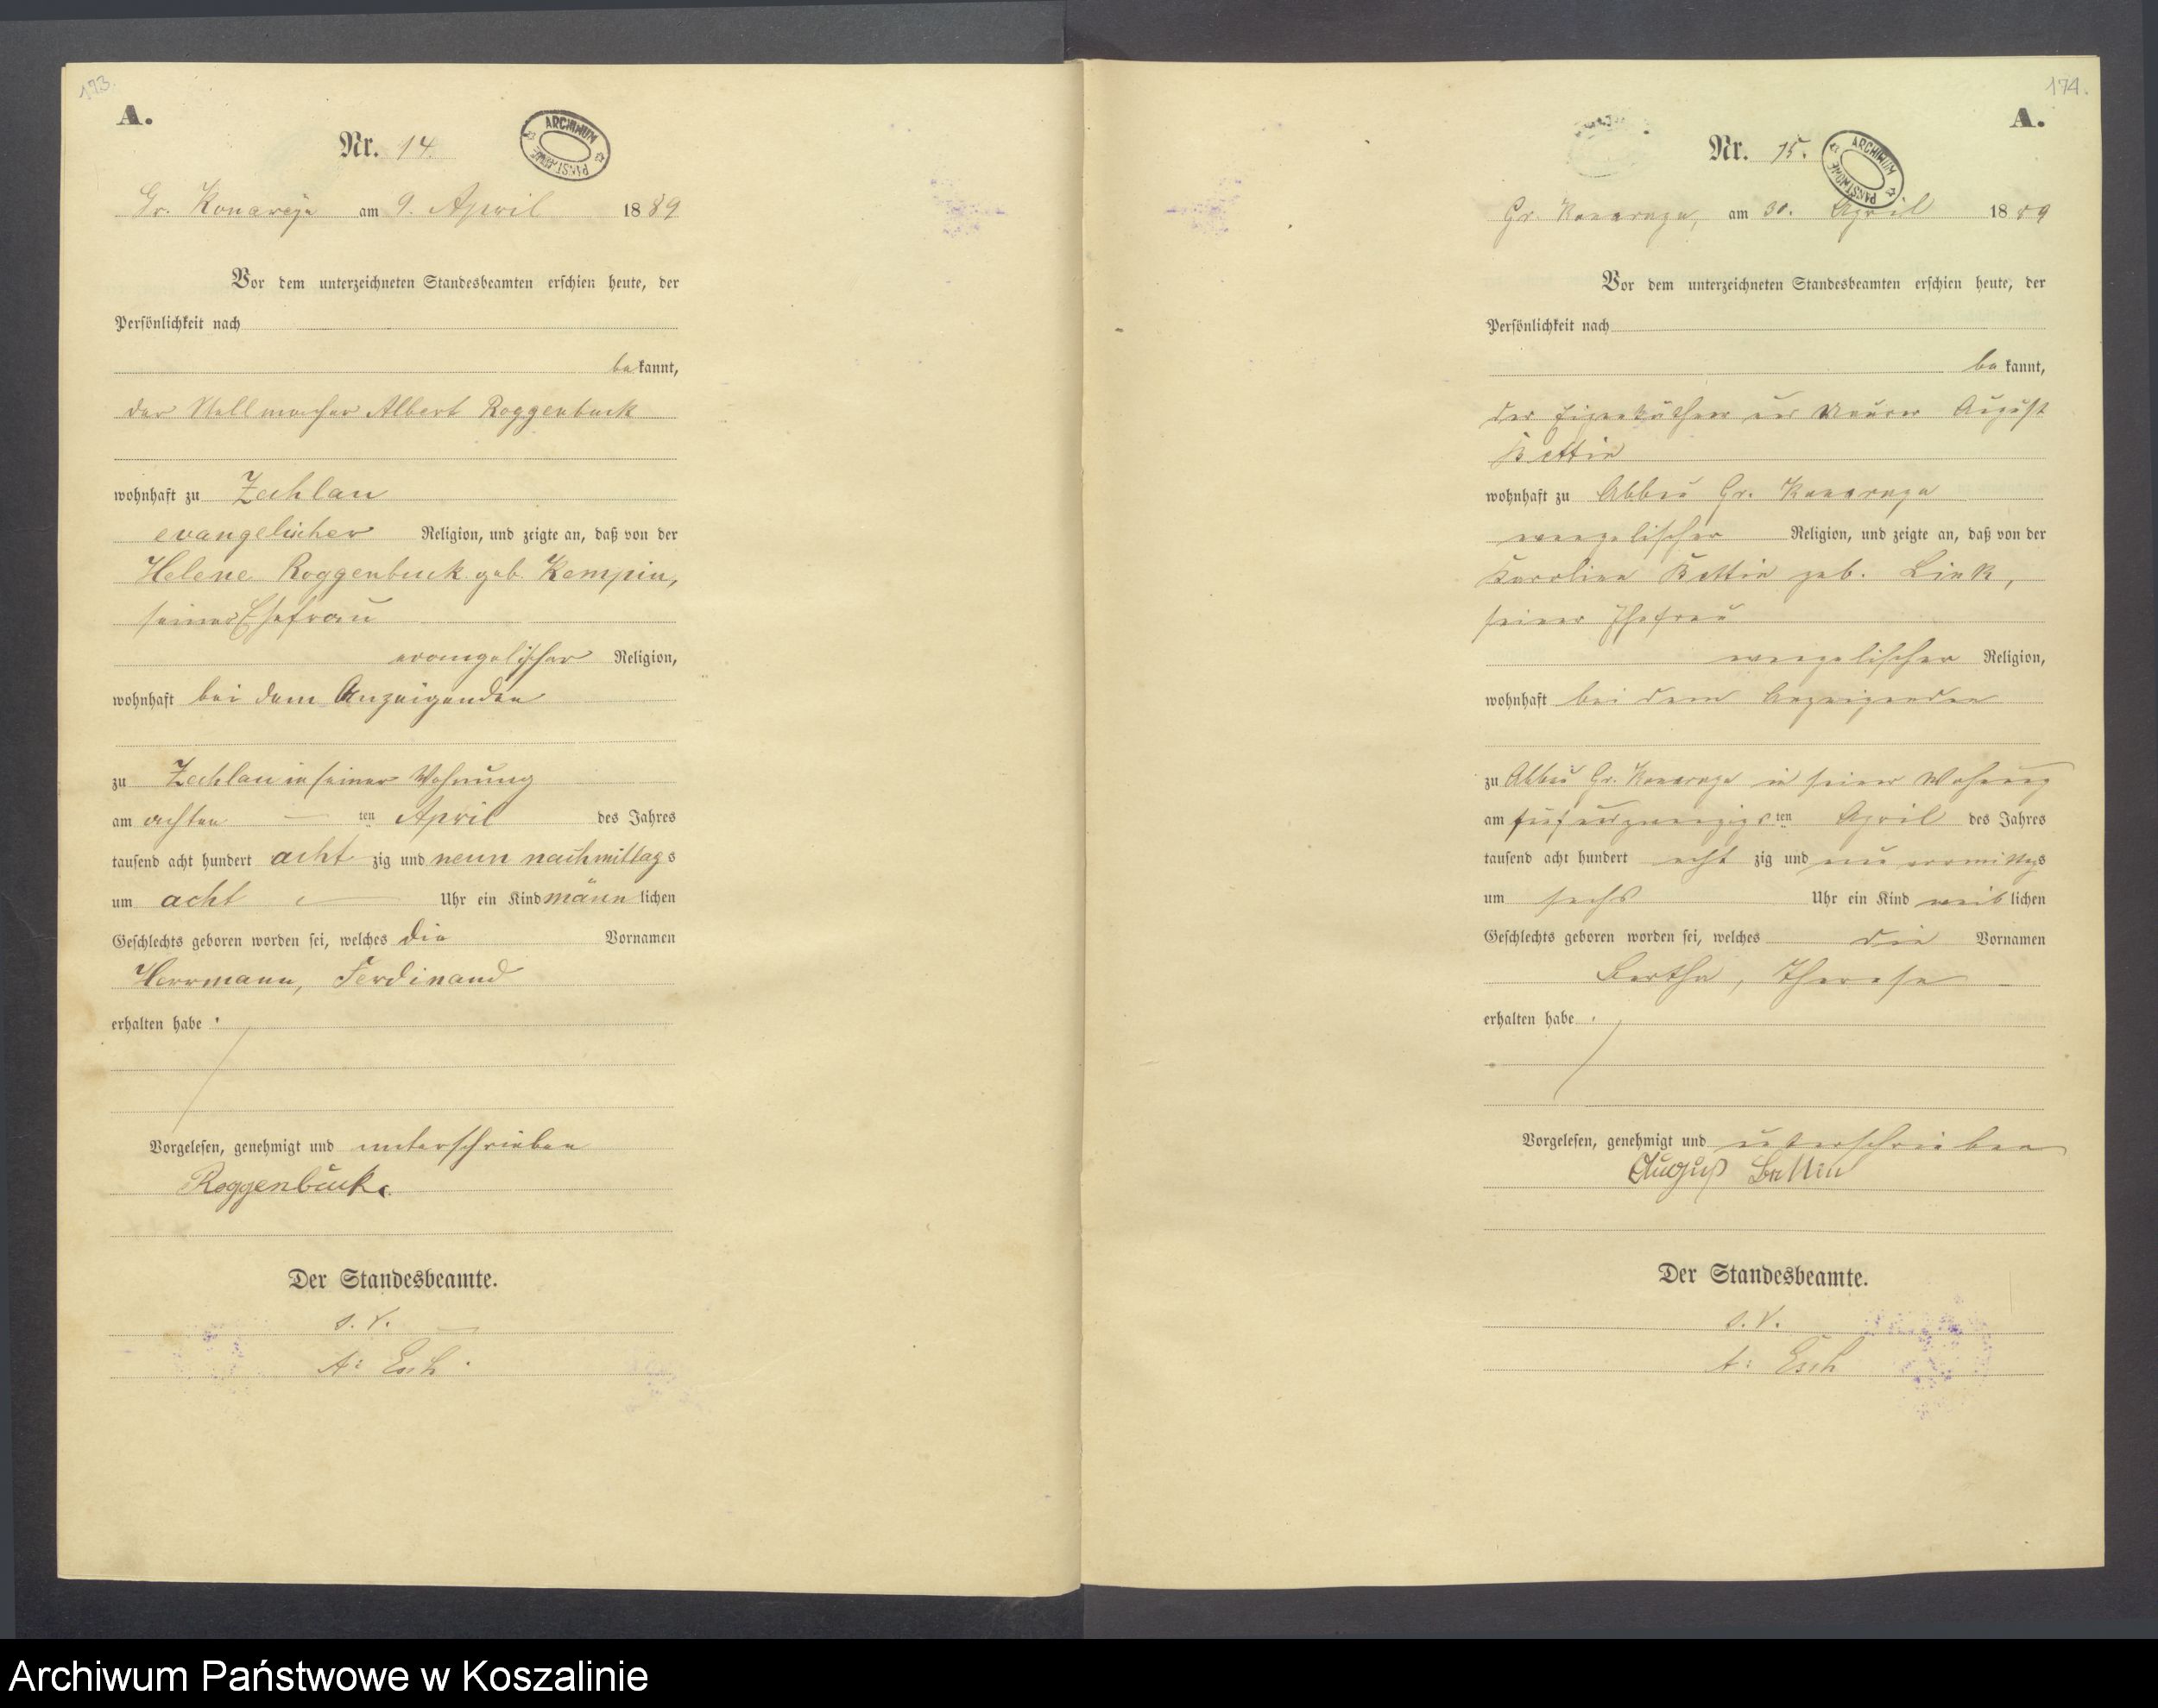 173.
A.
Nr. 14.
ARCHIWUM PAŃSTWOWE
Gr. Konarczyn am 9. April 1889
Vor dem unterzeichneten Standesbeamten erschien heute, der
Persönlichkeit nach
bekannt,
der Stellmacher Albert Roggenbuck
wohnhaft zu Zechlau
evangelischer Religion, und zeigte an, daß von der
Helene Roggenbuck geb. Kempin,
seiner Ehefrau
evangelischer Religion,
wohnhaft bei dem Anzeigenden
zu Zechlau in seiner Wohnung
am achten ten April des Jahres
tausend acht hundert achtzig und neun nachmittags
um acht Uhr ein Kind männlichen
Geschlechts geboren worden sei, welches die Vornamen
Herrmann, Ferdinand
erhalten habe.
Vorgelesen, genehmigt und unterschrieben
Roggenbuck.
Der Standesbeamte.
s. V.
A: Esch.
174.
A.
Nr. 15.
ARCHIWUM PAŃSTWOWE
Gr am 30. April 1889
Vor dem unterzeichneten Standesbeamten erschien heute, der
Persönlichkeit nach
bekannt,
der Eigenkäthner und Maurer August
Bettin
wohnhaft zu Abbau Gr.
evangelischer Religion, und zeigte an, daß von der
Karoline Bettin geb. Link,
seiner Ehefrau
evangelischer Religion,
wohnhaft bei dem Anzeigenden
zu Abbau Gr. in seiner Wohnung
am fünfundzwanzigsten April des Jahres
tausend acht hundert achtzig und neun vormittags
um sechs Uhr ein Kind weiblichen
Geschlechts geboren worden sei, welches die Vornamen
Bertha, Therese
erhalten habe.
Vorgelesen, genehmigt und unterschrieben
August Bettin
Der Standesbeamte.
s. V.
A: Esch
Archiwum Państwowe w Koszalinie